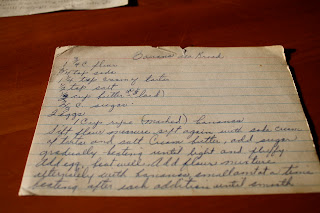 Banana Nut Bread
1 3/4 C flour
3/4 tsp soda
1 1/4 tsp cream of tarter
1/2 tsp salt
cup butter
3/4 C. sugar
2 eggs
1 Cup ripe (mashed) bananas
Sift flour, measure, sift again with soda, cream
of tarter and salt. Cream butter, add sugar
gradually beating until light and fluffy
Add egg, beat well. Add flour mixture
alternately with bananas, small amt at a time
beating after each addition until smooth